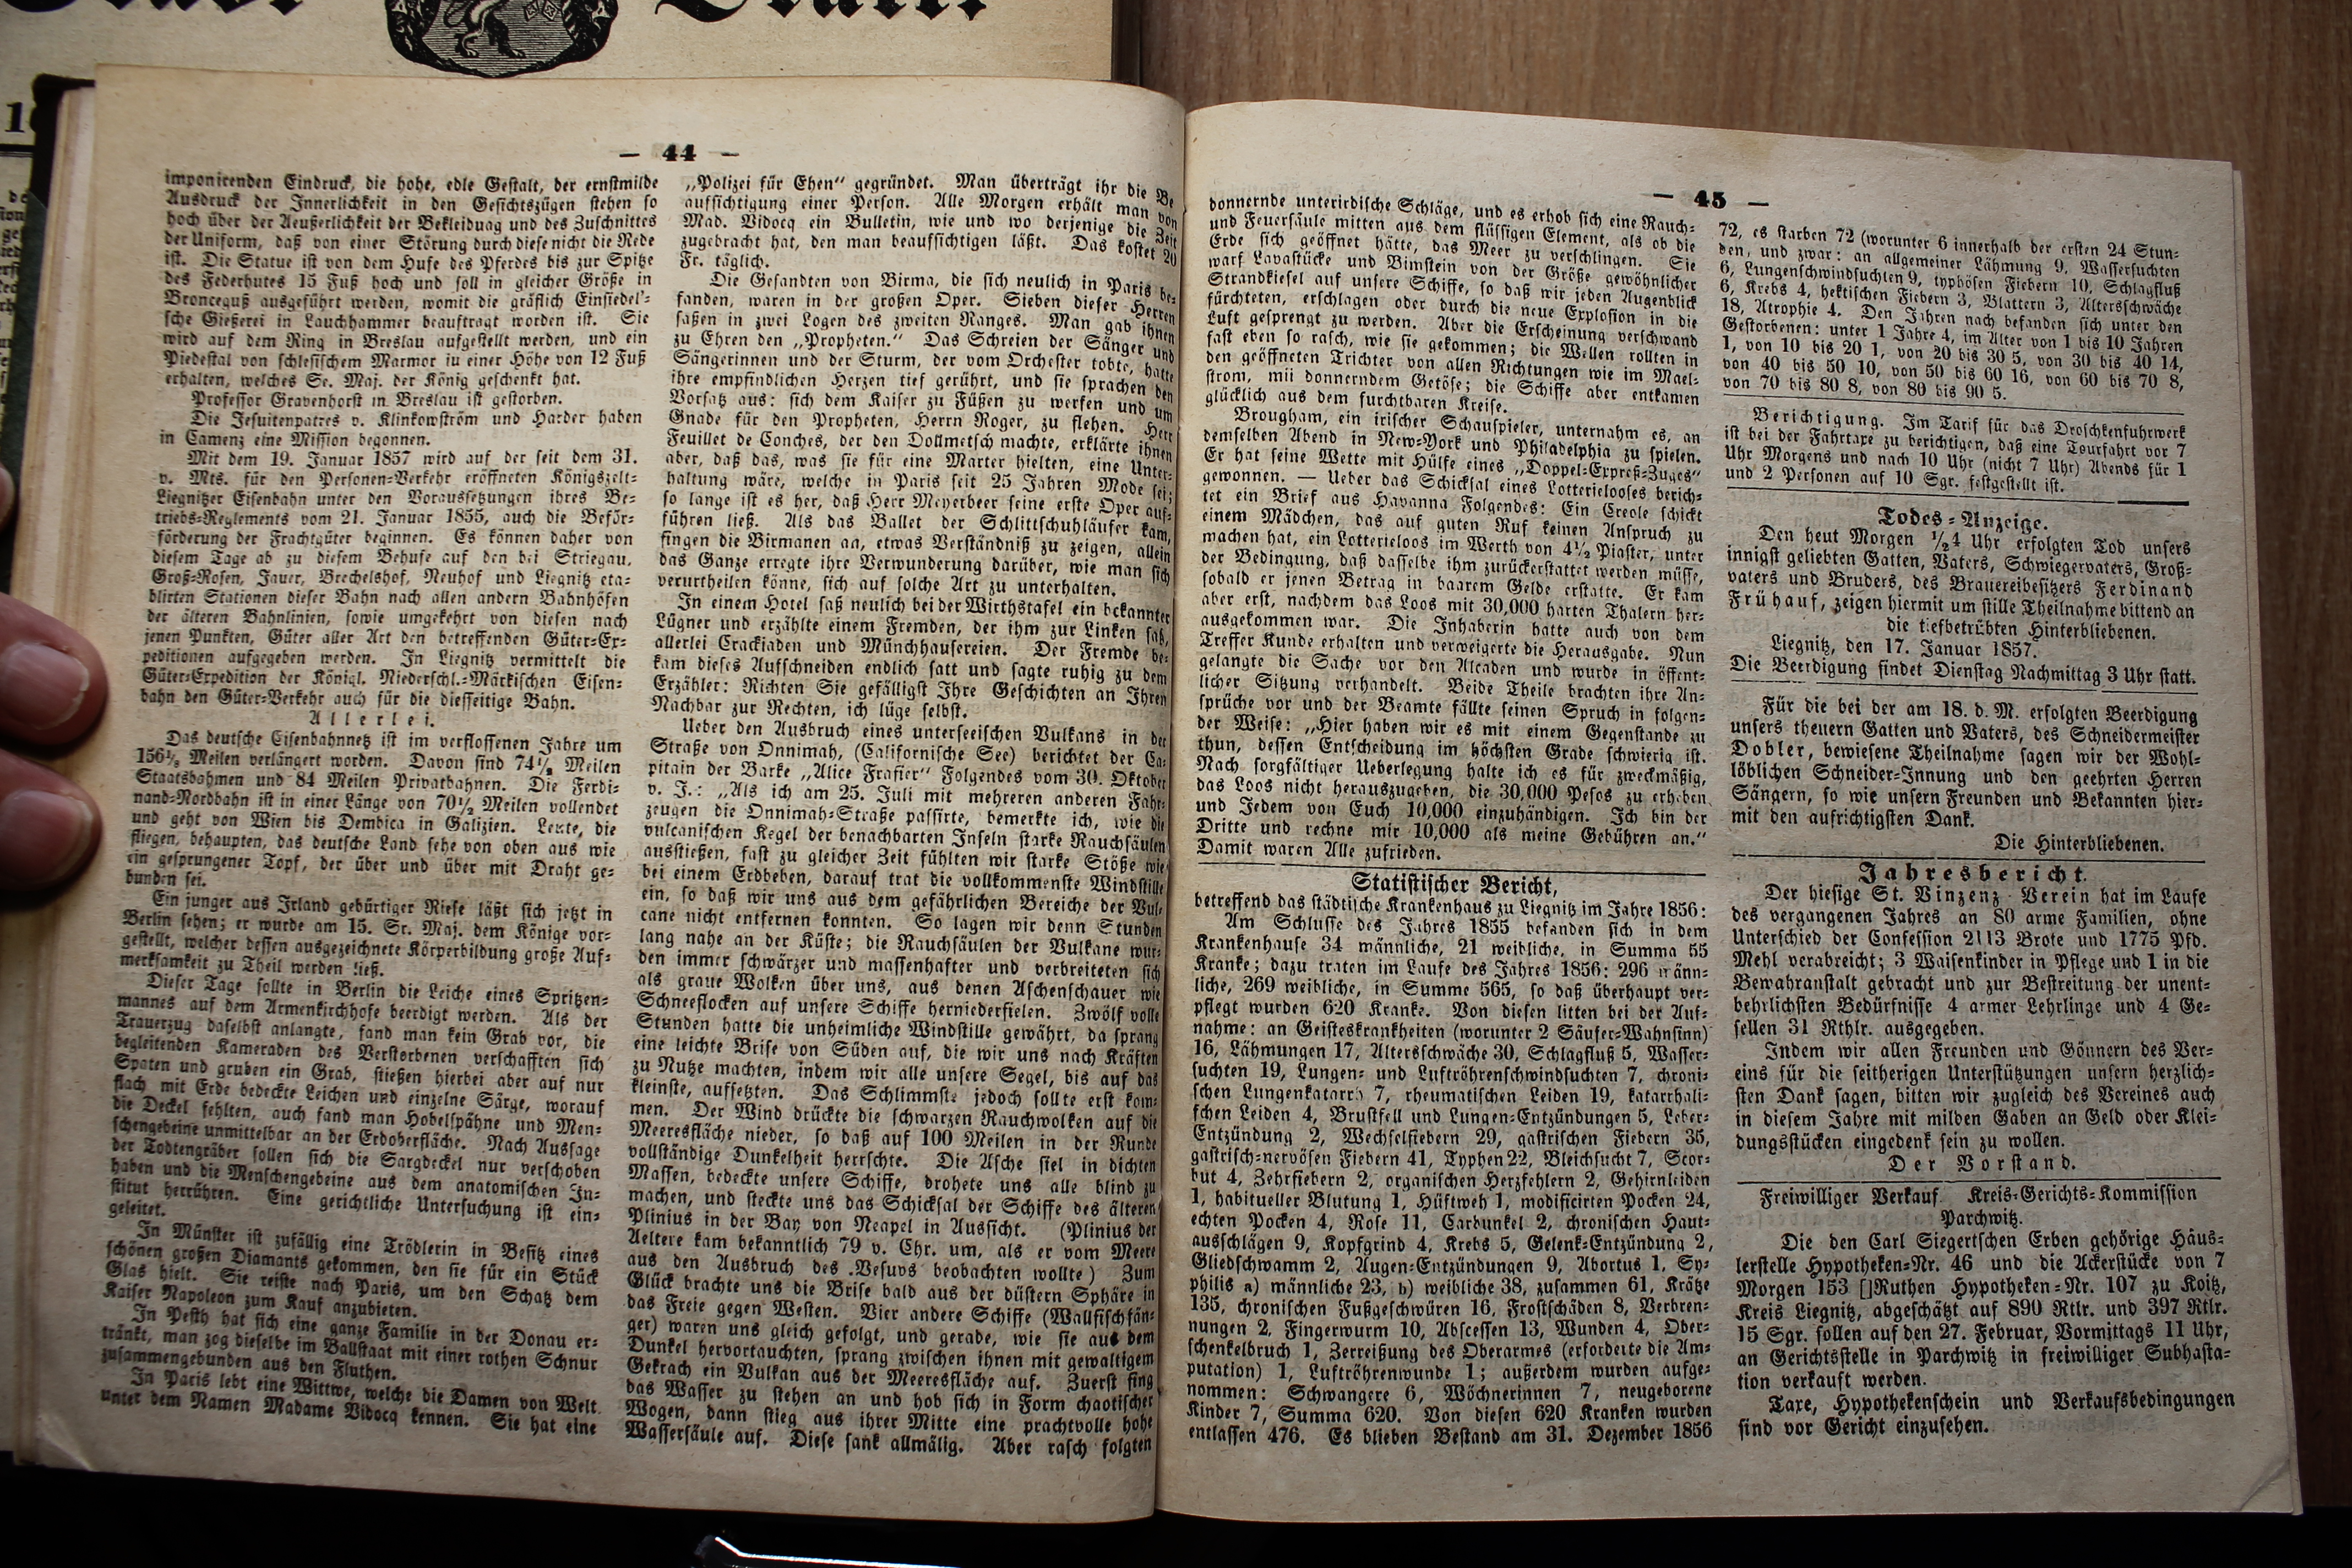 — 44 —
imponirenden Eindruck, die hohe, edle Gestalt, der ernstmilde
Ausdruck der Innerlichkeit in den Gesichtszügen stehen so
hoch über der Aeußerlichkeit der Bekleidung und des Zuschnittes
der Uniform, daß von einer Störung durch diese nicht die Rede
ist. Die Statue ist von dem Hufe des Pferdes bis zur Spitze
des Federhutes 15 Fuß hoch und soll in gleicher Größe in
Bronceguß ausgeführt werden, womit die gräflich Einsiedel'-
sche Gießerei in Lauchhammer beauftragt worden ist. Sie
wird auf dem Ring in Breslau aufgestellt werden, und ein
Piedestal von schlesischem Marmor in einer Höhe von 12 Fuß
erhalten, welches Se. Maj. der König geschenkt hat.
Professor Gravenhorst in Breslau ist gestorben.
Die Jesuitenpatres v. Klinkowström und Harder haben
in Camenz eine Mission begonnen.
Mit dem 19. Januar 1857 wird auf der seit dem 31.
v. Mts. für den Personen-Verkehr eröffneten Königszelt-
Liegnitzer Eisenbahn unter den Voraussetzungen ihres Be-
triebs-Reglements vom 21. Januar 1855, auch die Beför-
förderung der Frachtgüter beginnen. Es können daher von
diesem Tage ab zu diesem Behufe auf den bei Striegau,
Groß-Rosen, Jauer, Brechelshof, Neuhof und Liegnitz eta-
blirten Stationen dieser Bahn nach allen andern Bahnhöfen
der älteren Bahnlinien, sowie umgekehrt von diesen nach
jenen Punkten, Güter aller Art den betreffenden Güter-Ex-
peditionen aufgegeben werden. In Liegnitz vermittelt die
Güter-Expedition der Königl. Niederschl.-Märkischen Eisen-
bahn den Güter-Verkehr auch für die diesseitige Bahn.
Allerlei.
Das deutsche Eisenbahnnetz ist im verflossenen Jahre um
156½ Meilen verlängert worden. Davon sind 74½ Meilen
Staatsbahmen und 84 Meilen Privatbahnen. Die Ferdi-
nand-Nordbahn ist in einer Länge von 70½ Meilen vollendet
und geht von Wien bis Dembica in Galizien. Leute, die
fliegen, behaupten, das deutsche Land sehe von oben aus wie
ein gesprungener Topf, der über und über mit Draht ge-
bunden sei.
Ein junger aus Irland gebürtiger Riese läßt sich jetzt in
Berlin sehen; er wurde am 15. Sr. Maj. dem Könige vor-
gestellt, welcher dessen ausgezeichnete Körperbildung große Auf-
merksamkeit zu Theil werden ließ.
Dieser Tage sollte in Berlin die Leiche eines Spritzen-
mannes auf dem Armenkirchhofe beerdigt werden. Als der
Trauerzug daselbst anlangte, fand man kein Grab vor, die
begleitenden Kameraden des Verstorbenen verschafften sich
Spaten und gruben ein Grab, stießen hierbei aber auf nur
flach mit Erde bedeckte Leichen und einzelne Särge, worauf
die Deckel fehlten, auch fand man Hobelspähne und Men-
schengebeine unmittelbar an der Erdoberfläche. Nach Aussage
der Todtengräber sollen sich die Sargdeckel nur verschoben
haben und die Menschengebeine aus dem anatomischen In-
stitut herrühren. Eine gerichtliche Untersuchung ist ein-
geleitet.
In Münster ist zufällig eine Trödlerin in Besitz eines
schönen großen Diamants gekommen, den sie für ein Stück
Glas hielt. Sie reiste nach Paris, um den Schatz dem
Kaiser Napoleon zum Kauf anzubieten.
In Pesth hat sich eine ganze Familie in der Donau er-
tränkt, man zog dieselbe im Ballstaat mit einer rothen Schnur
zusammengebunden aus den Fluthen.
In Paris lebt eine Wittwe, welche die Damen von Welt
unter dem Namen Madame Vidocq kennen. Sie hat eine
„Polizei für Ehen“ gegründet. Man überträgt ihr die Be
aufsichtigung einer Person. Alle Morgen erhält man von
Mad. Vidocq ein Bulletin, wie und wo derjenige die Zeit
zugebracht hat, den man beaufsichtigen läßt. Das kostet 20
Fr. täglich.
Die Gesandten von Birma, die sich neulich in Paris be-
fanden, waren in der großen Oper. Sieben dieser Herren
saßen in zwei Logen des zweiten Ranges. Man gab ihnen
zu Ehren den „Propheten.“ Das Schreien der Sänger und
Sängerinnen und der Sturm, der vom Orchester tobte, hatte
ihre empfindlichen Herzen tief gerührt, und sie sprachen den
Vorsatz aus: sich dem Kaiser zu Füßen zu werfen und um
Gnade für den Propheten, Herrn Roger, zu flehen. Herr
Feuillet de Conches, der den Dollmetsch machte, erklärte ihnen
aber, daß das, was sie für eine Marter hielten, eine Unter-
haltung wäre, welche in Paris seit 25 Jahren Mode sei;
so lange ist es her, daß Herr Meyerbeer seine erste Oper auf-
führen ließ. Als das Ballet der Schlittschuhläufer kam,
fingen die Birmanen an, etwas Verständniß zu zeigen, allein
das Ganze erregte ihre Verwunderung darüber, wie man sich
verurtheilen könne, sich auf solche Art zu unterhalten.
In einem Hotel saß neulich bei der Wirthstafel ein bekannter
Lügner und erzählte einem Fremden, der ihm zur Linken saß,
allerlei Crackiaden und Münchhausereien. Der Fremde be-
kam dieses Aufschneiden endlich satt und sagte ruhig zu dem
Erzähler: Richten Sie gefälligst Ihre Geschichten an Ihren
Nachbar zur Rechten, ich lüge selbst.
Ueber den Ausbruch eines unterseeischen Vulkans in der
Straße von Onnimah, (Californische See) berichtet der Ca-
pitain der Barke „Alice Frasier“ Folgendes vom 30. Oktober
v. J.: „Als ich am 25. Juli mit mehreren anderen Fahr-
zeugen die Onnimah-Straße passirte, bemerkte ich, wie die
vulcanischen Kegel der benachbarten Inseln starke Rauchsäulen
ausstießen, fast zu gleicher Zeit fühlten wir starke Stöße wie
bei einem Erdbeben, darauf trat die vollkommenste Windstille
ein, so daß wir uns aus dem gefährlichen Bereiche der Vul-
cane nicht entfernen konnten. So lagen wir denn Stunden
lang nahe an der Küste; die Rauchsäulen der Vulkane wur-
den immer schwärzer und massenhafter und verbreiteten sich
als graue Wolken über uns, aus denen Aschenschauer wie
Schneeflocken auf unsere Schiffe herniederfielen. Zwölf volle
Stunden hatte die unheimliche Windstille gewährt, da sprang
eine leichte Brise von Süden auf, die wir uns nach Kräften
zu Nutze machten, indem wir alle unsere Segel, bis auf das
kleinste, aufsetzten. Das Schlimmste jedoch sollte erst kom-
men. Der Wind drückte die schwarzen Rauchwolken auf die
Meeresfläche nieder, so daß auf 100 Meilen in der Runde
vollständige Dunkelheit herrschte. Die Asche fiel in dichten
Massen, bedeckte unsere Schiffe, drohete uns alle blind zu
machen, und steckte uns das Schicksal der Schiffe des älteren
Plinius in der Bay von Neapel in Aussicht. (Plinius der
Aeltere kam bekanntlich 79 v. Chr. um, als er vom Meere
aus den Ausbruch des Vesuvs beobachten wollte) Zum
Glück brachte uns die Brise bald aus der düstern Sphäre in
das Freie gegen Westen. Vier andere Schiffe (Wallfischfän-
ger) waren uns gleich gefolgt, und gerade, wie sie aus dem
Dunkel hervortauchten, sprang zwischen ihnen mit gewaltigem
Gekrach ein Vulkan aus der Meeresfläche auf. Zuerst fing
das Wasser zu stehen an und hob sich in Form chaotischer
Wogen, dann stieg aus ihrer Mitte eine prachtvolle hohe
Wassersäule auf. Diese sank allmälig. Aber rasch folgten
— 45 —
donnernde unterirdische Schläge, und es erhob sich eine Rauch-
und Feuersäule mitten aus dem flüssigen Element, als ob die
Erde sich geöffnet hätte, das Meer zu verschlingen. Sie
warf Lavastücke und Bimstein von der Größe gewöhnlicher
Strandkiesel auf unsere Schiffe, so daß wir jeden Augenblick
fürchteten, erschlagen oder durch die neue Explosion in die
Luft gesprengt zu werden. Aber die Erscheinung verschwand
fast eben so rasch, wie sie gekommen; die Wellen rollten in
den geöffneten Trichter von allen Richtungen wie im Mael-
strom, mit donnerndem Getöse; die Schiffe aber entkamen
glücklich aus dem furchtbaren Kreise.
Brougham, ein irischer Schauspieler, unternahm es, an
demselben Abend in New-York und Philadelphia zu spielen.
Er hat seine Wette mit Hülfe eines „Doppel-Expreß-Zuges“
gewonnen. — Ueber das Schicksal eines Lotterielooses berich-
tet ein Brief aus Havanna Folgendes: Ein Creole schickt
einem Mädchen, das auf guten Ruf keinen Anspruch zu
machen hat, ein Lotterieloos im Werth von 4½ Piaster, unter
der Bedingung, daß dasselbe ihm zurückerstattet werden müsse,
sobald er jenen Betrag in baarem Gelde erstatte. Er kam
aber erst, nachdem das Loos mit 30,000 harten Thalern her-
ausgekommen war. Die Inhaberin hatte auch von dem
Treffer Kunde erhalten und verweigerte die Herausgabe. Nun
gelangte die Sache vor den Alcaden und wurde in öffent-
licher Sitzung verhandelt. Beide Theile brachten ihre An-
sprüche vor und der Beamte fällte seinen Spruch in folgen-
der Weise: „Hier haben wir es mit einem Gegenstande zu
thun, dessen Entscheidung im höchsten Grade schwierig ist.
Nach sorgfältiger Ueberlegung halte ich es für zweckmäßig,
das Loos nicht herauszugeben, die 30,000 Pesos zu erheben
und Jedem von Euch 10,000 einzuhändigen. Ich bin der
Dritte und rechne mir 10,000 als meine Gebühren an.“
Damit waren Alle zufrieden.
Statistischer Bericht,
betreffend das städtische Krankenhaus zu Liegnitz im Jahre 1856:
Am Schlusse des Jahres 1855 befanden sich in dem
Krankenhause 34 männliche, 21 weibliche, in Summa 55
Kranke; dazu traten im Laufe des Jahres 1856: 296 männ-
liche, 269 weibliche, in Summe 565, so daß überhaupt ver-
pflegt wurden 620 Kranke. Von diesen litten bei der Auf-
nahme: an Geisteskrankheiten (worunter 2 Säufer-Wahnsinn)
16, Lähmungen 17, Altersschwäche 30, Schlagfluß 5, Wasser-
suchten 19, Lungen- und Luftröhrenschwindsuchten 7, chroni-
schen Lungenkatarrh 7, rheumatischen Leiden 19, katarrhali-
schen Leiden 4, Brustfell und Lungen-Entzündungen 5, Leber-
Entzündung 2, Wechselfiebern 29, gastrischen Fiebern 35,
gastrisch-nervösen Fiebern 41, Typhen 22, Bleichsucht 7, Scor-
but 4, Zehrfiebern 2, organischen Herzfehlern 2, Gehirnleiden
1, habitueller Blutung 1, Hüftweh 1, modificirten Pocken 24,
echten Pocken 4, Rose 11, Carbunkel 2, chronischen Haut-
ausschlägen 9, Kopfgrind 4, Krebs 5, Gelenk-Entzündung 2,
Gliedschwamm 2, Augen-Entzündungen 9, Abortus 1, Sy-
philis a) männliche 23, b) weibliche 38, zusammen 61, Krätze
135, chronischen Fußgeschwüren 16, Frostschäden 8, Verbren-
nungen 2, Fingerwurm 10, Abscessen 13, Wunden 4, Ober-
schenkelbruch 1, Zerreißung des Oberarmes (erforderte die Am-
putation) 1, Luftröhrenwunde 1; außerdem wurden aufge-
nommen: Schwangere 6, Wöchnerinnen 7, neugeborene
Kinder 7, Summa 620. Von diesen 620 Kranken wurden
entlassen 476. Es blieben Bestand am 31. Dezember 1856
72, es starben 72 (worunter 6 innerhalb der ersten 24 Stun-
den, und zwar: an allgemeiner Lähmung 9, Wassersuchten
6, Lungenschwindsuchten 9, typhösen Fiebern 10, Schlagfluß
6, Krebs 4, hektischen Fiebern 3, Blattern 3, Altersschwäche
18, Atrophie 4. Den Jahren nach befanden sich unter den
Gestorbenen: unter 1 Jahre 4, im Alter von 1 bis 10 Jahren
1, von 10 bis 20 1, von 20 bis 30 5, von 30 bis 40 14,
von 40 bis 50 10, von 50 bis 60 16, von 60 bis 70 8,
von 70 bis 80 8, von 80 bis 90 5.
Berichtigung. Im Tarif für das Droschkenfuhrwerk
ist bei der Fahrtaxe zu berichtigen, daß eine Tourfahrt vor 7
Uhr Morgens und nach 10 Uhr (nicht 7 Uhr) Abends für 1
und 2 Personen auf 10 Sgr. festgestellt ist.
Todes-Anzeige.
Den heut Morgen ½4 Uhr erfolgten Tod unsers
innigst geliebten Gatten, Vaters, Schwiegervaters, Groß-
vaters und Bruders, des Brauereibesitzers Ferdinand
Frühauf, zeigen hiermit um stille Theilnahme bittend an
die tiefbetrübten Hinterbliebenen.
Liegnitz, den 17. Januar 1857.
Die Beerdigung findet Dienstag Nachmittag 3 Uhr statt.
Für die bei der am 18. d. M. erfolgten Beerdigung
unsers theuern Gatten und Vaters, des Schneidermeister
Dobler, bewiesene Theilnahme sagen wir der Wohl-
löblichen Schneider-Innung und den geehrten Herren
Sängern, so wie unsern Freunden und Bekannten hier-
mit den aufrichtigsten Dank.
Die Hinterbliebenen.
Jahresbericht.
Der hiesige St. Vinzenz Verein hat im Laufe
des vergangenen Jahres an 80 arme Familien, ohne
Unterschied der Confession 2113 Brote und 1775 Pfd.
Mehl verabreicht; 3 Waisenkinder in Pflege und 1 in die
Bewahranstalt gebracht und zur Bestreitung der unent-
behrlichsten Bedürfnisse 4 armer Lehrlinge und 4 Ge-
sellen 31 Rthlr. ausgegeben.
Indem wir allen Freunden und Gönnern des Ver-
eins für die seitherigen Unterstützungen unsern herzlich-
sten Dank sagen, bitten wir zugleich des Vereines auch
in diesem Jahre mit milden Gaben an Geld oder Klei-
dungsstücken eingedenk sein zu wollen.
Der Vorstand.
Freiwilliger Verkauf. Kreis-Gerichts-Kommission
Parchwitz.
Die den Carl Siegertschen Erben gehörige Häus-
lerstelle Hypotheken-Nr. 46 und die Ackerstücke von 7
Morgen 153 []Ruthen Hypotheken-Nr. 107 zu Koitz,
Kreis Liegnitz, abgeschätzt auf 890 Rtlr. und 397 Rtlr.
15 Sgr. sollen auf den 27. Februar, Vormittags 11 Uhr,
an Gerichtsstelle in Parchwitz in freiwilliger Subhasta-
tion verkauft werden.
Taxe, Hypothekenschein und Verkaufsbedingungen
sind vor Gericht einzusehen.